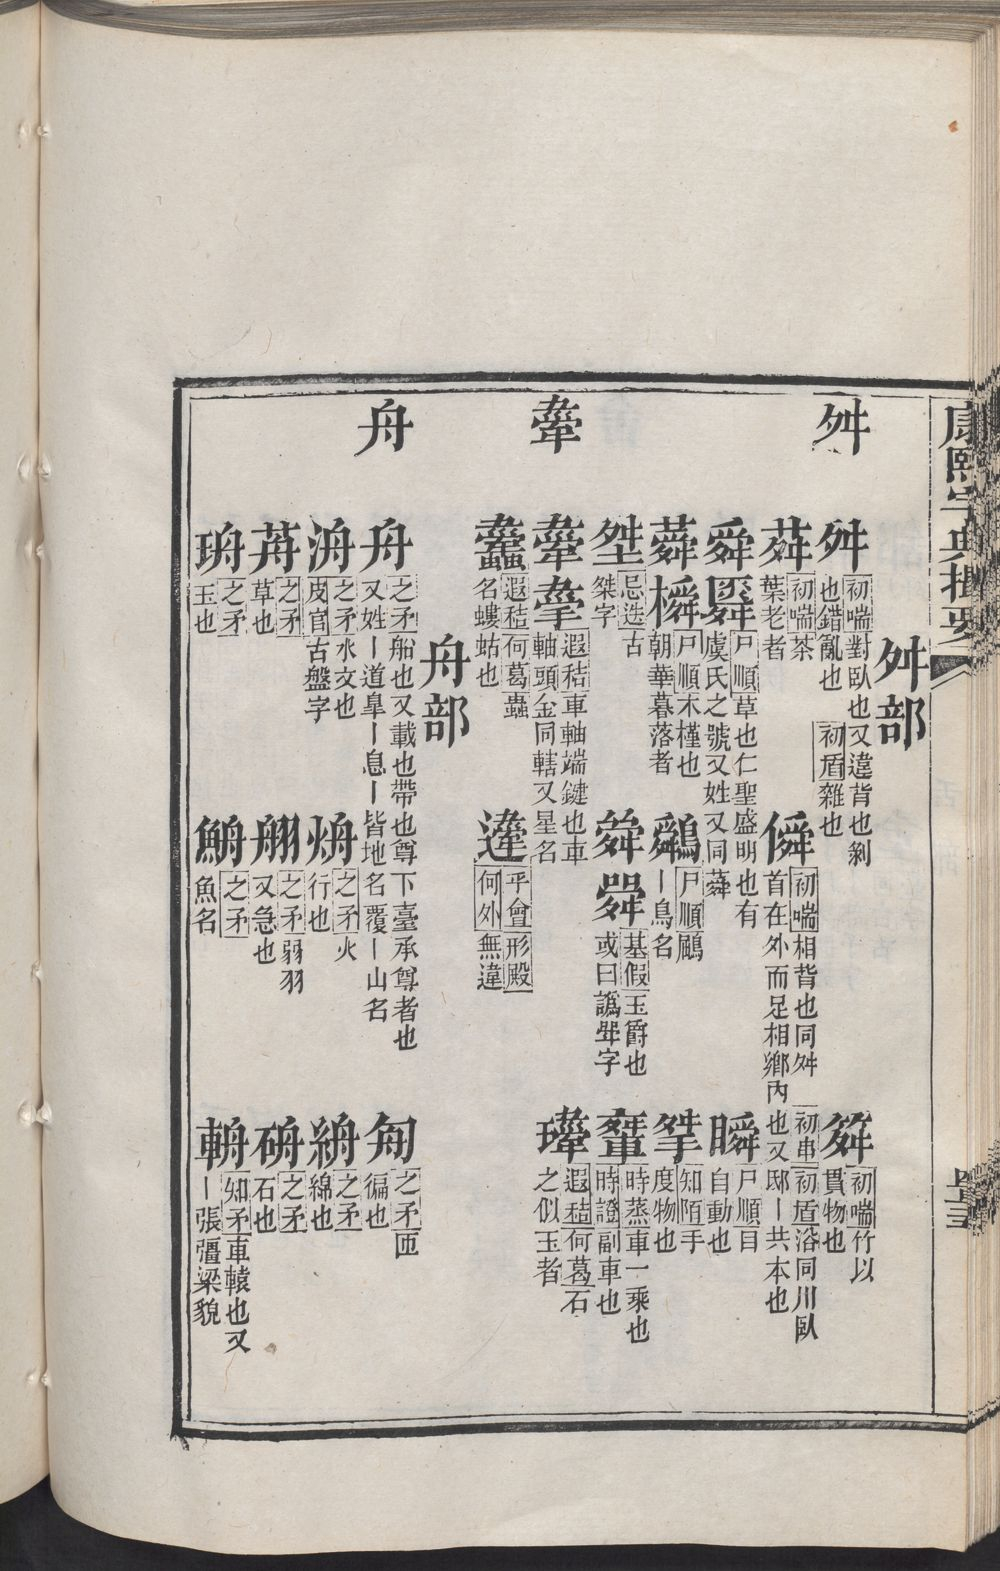 康熙字典撮要
舛部
舛
舛 初喘 對臥也又違背也剝也錯亂也 初盾 雜也
荈 初喘 茶葉老者
僢 初喘 相背也同舛 初串 初盾 㴊同川臥首在外而足相鄉內也又邸丨共本也
初喘 竹以貫物也
舜 尸順 草也仁聖盛明也有虞氏之號又姓又同蕣
瞬 尸順 目自動也
蕣 橓 尸順 木槿也朝華暮落者
尸順 鶠丨鳥名
知陌 手度物也
忌迭 古桀字
基假 玉爵也或曰譌斝字
時蒸 車一乘也 時證 副車也
舝
舝 遐秸 車軸端鍵也車軸頭金同轄又星名
遐秸 何葛 石之似玉者
遐秸 何葛 蟲名螻蛄也
平會 形殿 何外 無違
舟部
舟
舟 之矛 船也又載也帶也尊下臺承尊者也又姓丨道臯丨息丨皆地名覆丨山名
匊 之矛 匝徧也
洀 之矛 水文也 皮官 古盤字
烐 之矛 火行也
之矛 綿也
之矛 草也
之矛 弱羽又急也
之矛 石也
珘 之矛 玉也
鵃 之矛 魚名
輈 知矛 車轅也又丨張彊梁貌